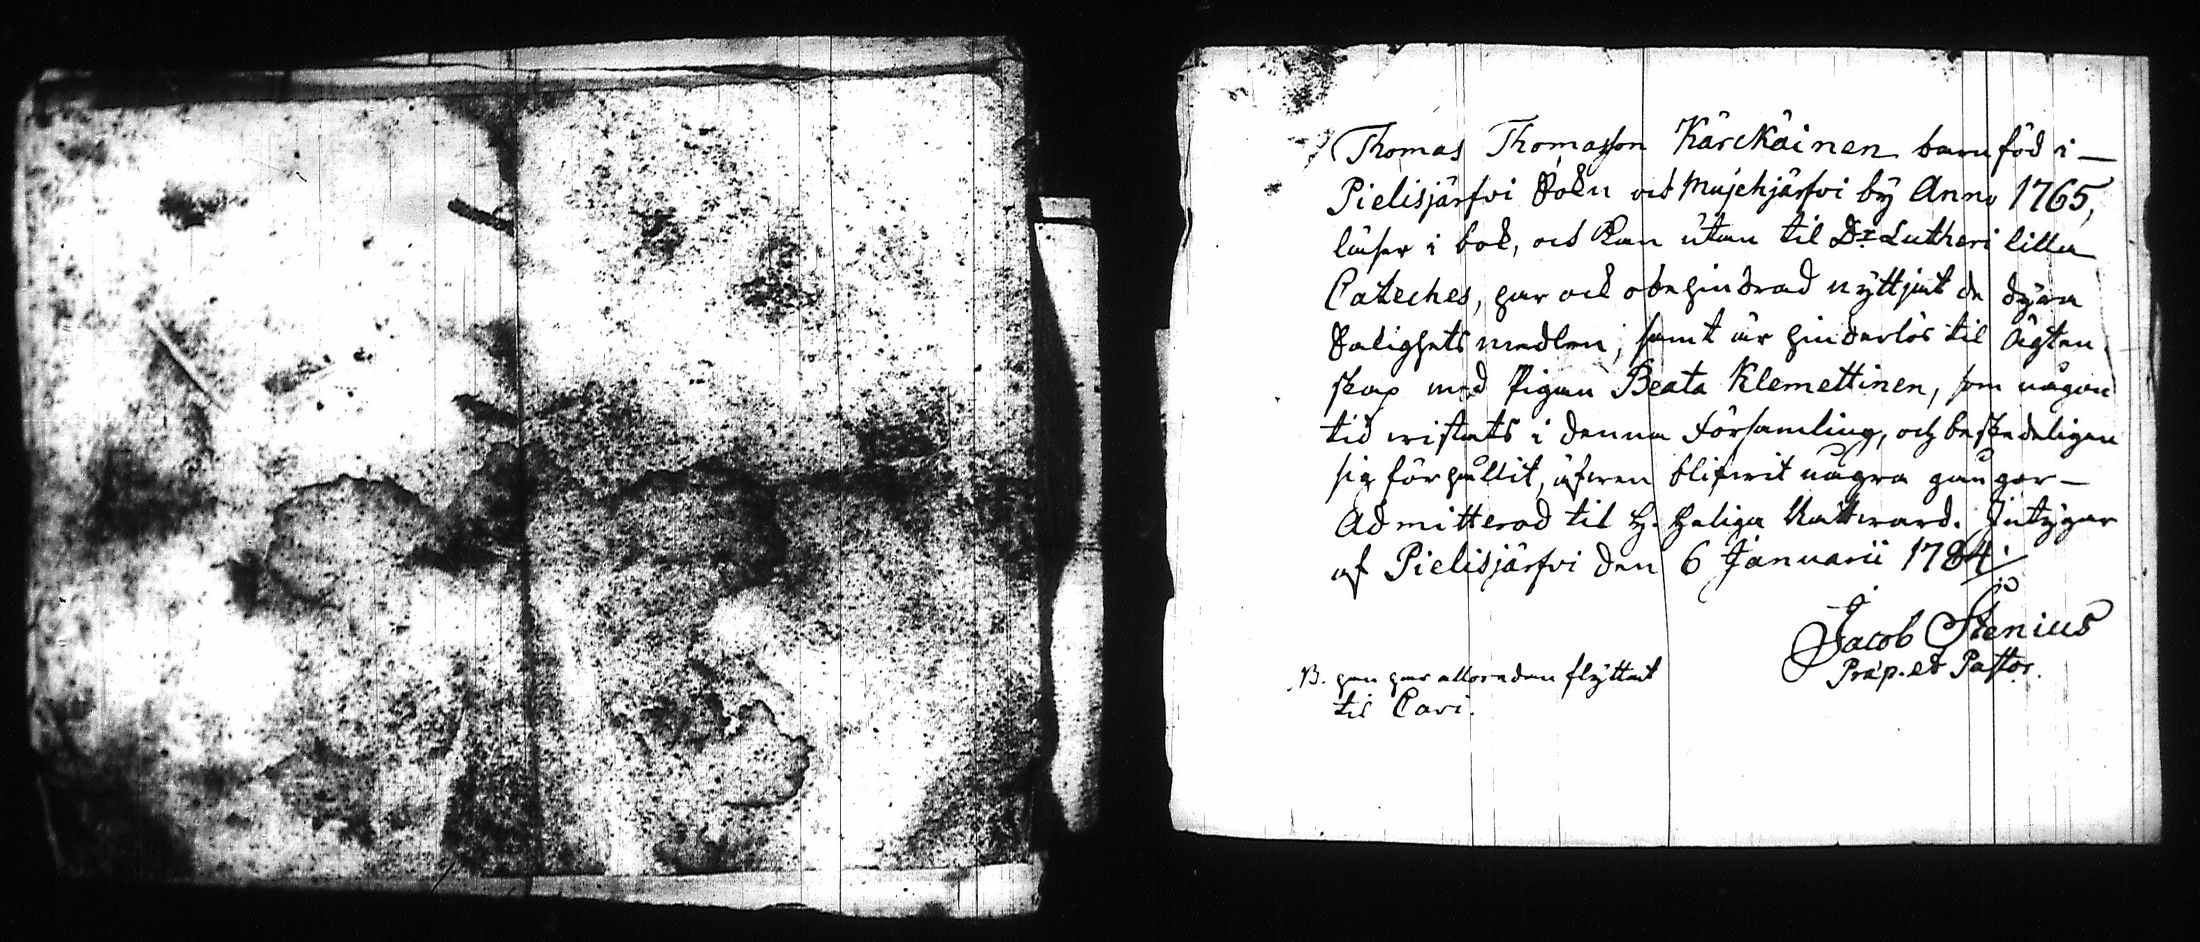 Thomas Thomasson Kärckäinen barnföd i —
Pielisjärfvi Sokn och Mujehjärfvi bÿ Anno 1765,
läser i bok, och kan utan til Dr Lutheri lilla
Cateches, har ock obehindrad nÿttjat de dÿra
Salighets medlen, samt är hinderlös til Ägten
skap med Pigan Beata Klemettinen, som någon
tid wistats i denna Församling, och beskedeligen
sig förhållit, äfwen blifwit några gånger —
Admitterad til H. Heliga Nattward. Intÿgar
af Pielisjärfvi den 6 Januarii 1784 ./.
Jacob Stenius
Præp. et Pastor.
NB. han har allaredan flÿttat
til Cavi.